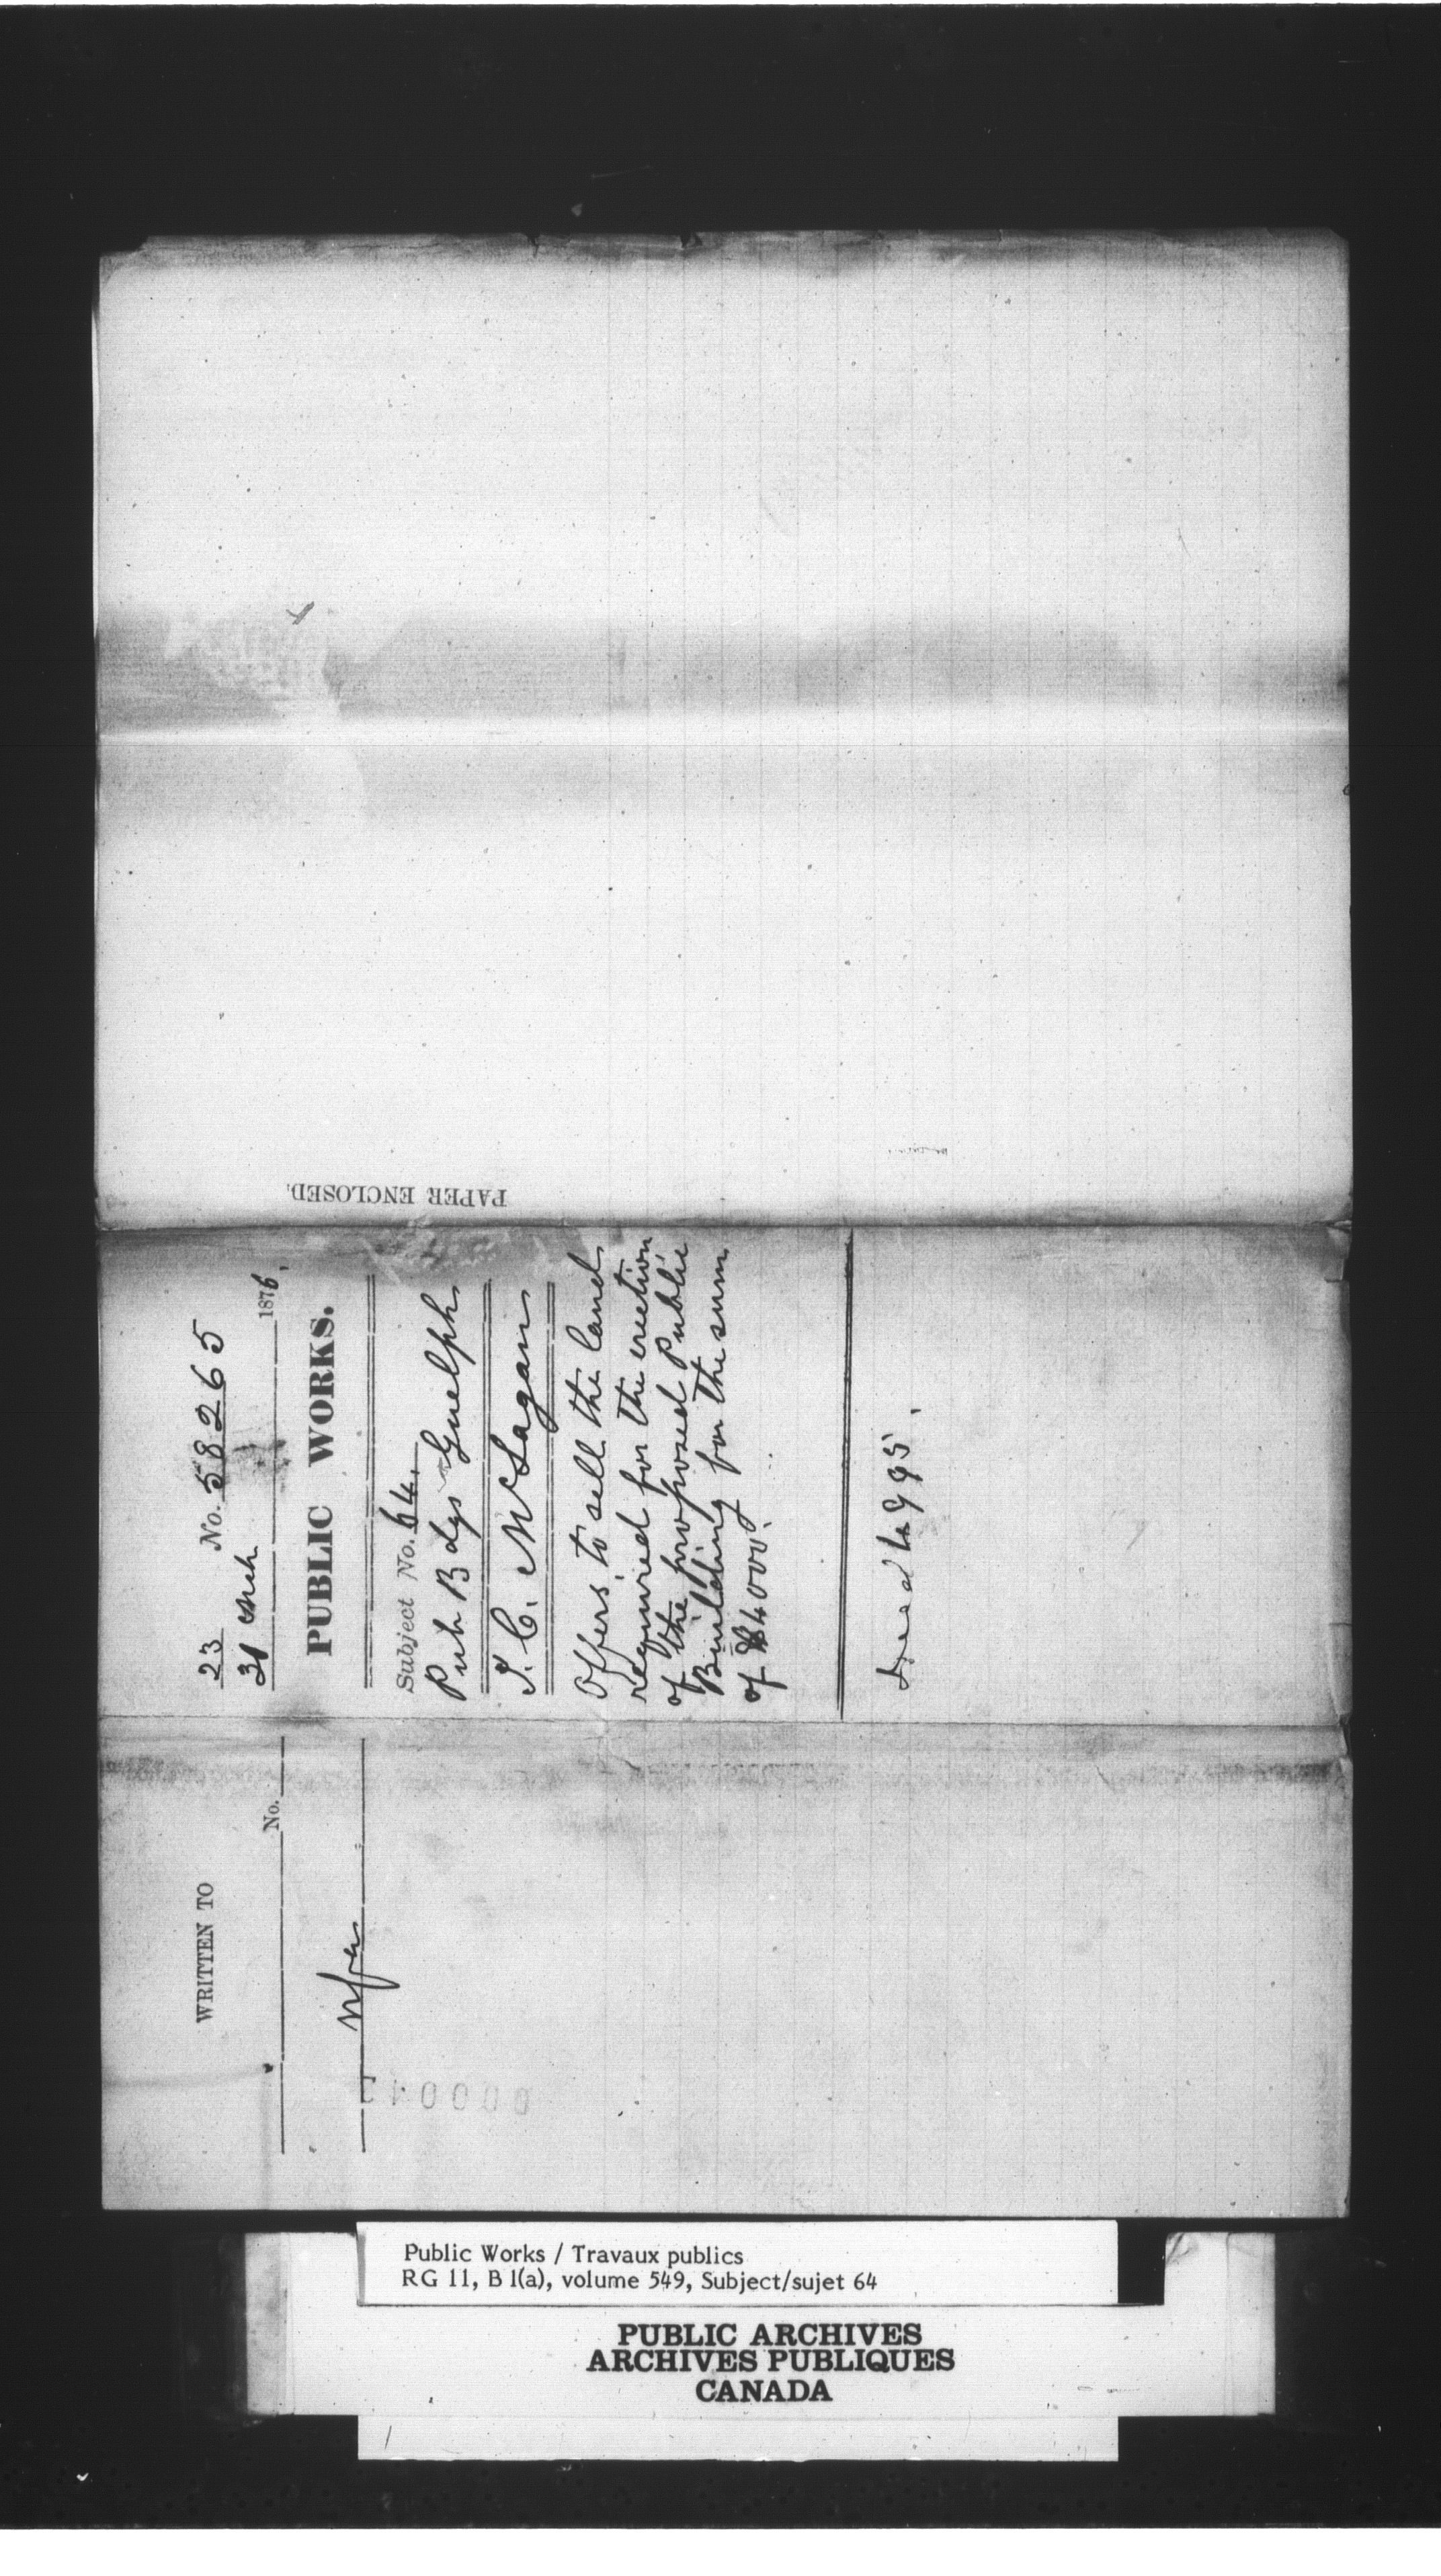 PAPER ENCLOSED.
23 No. 58265
31 Mch 1876.
PUBLIC WORKS.
Subject No. 64.
Pub Bdgs Guelph
McLagan
Offers to sell the land
required for the erection
of the proposed Public
Building for the sum
of $4000.
WRITTEN TO
No.
Public Works / Travaux publics
RG 11, B 1(a), volume 549, Subject/sujet 64
PUBLIC ARCHIVES
ARCHIVES PUBLIQUES
CANADA